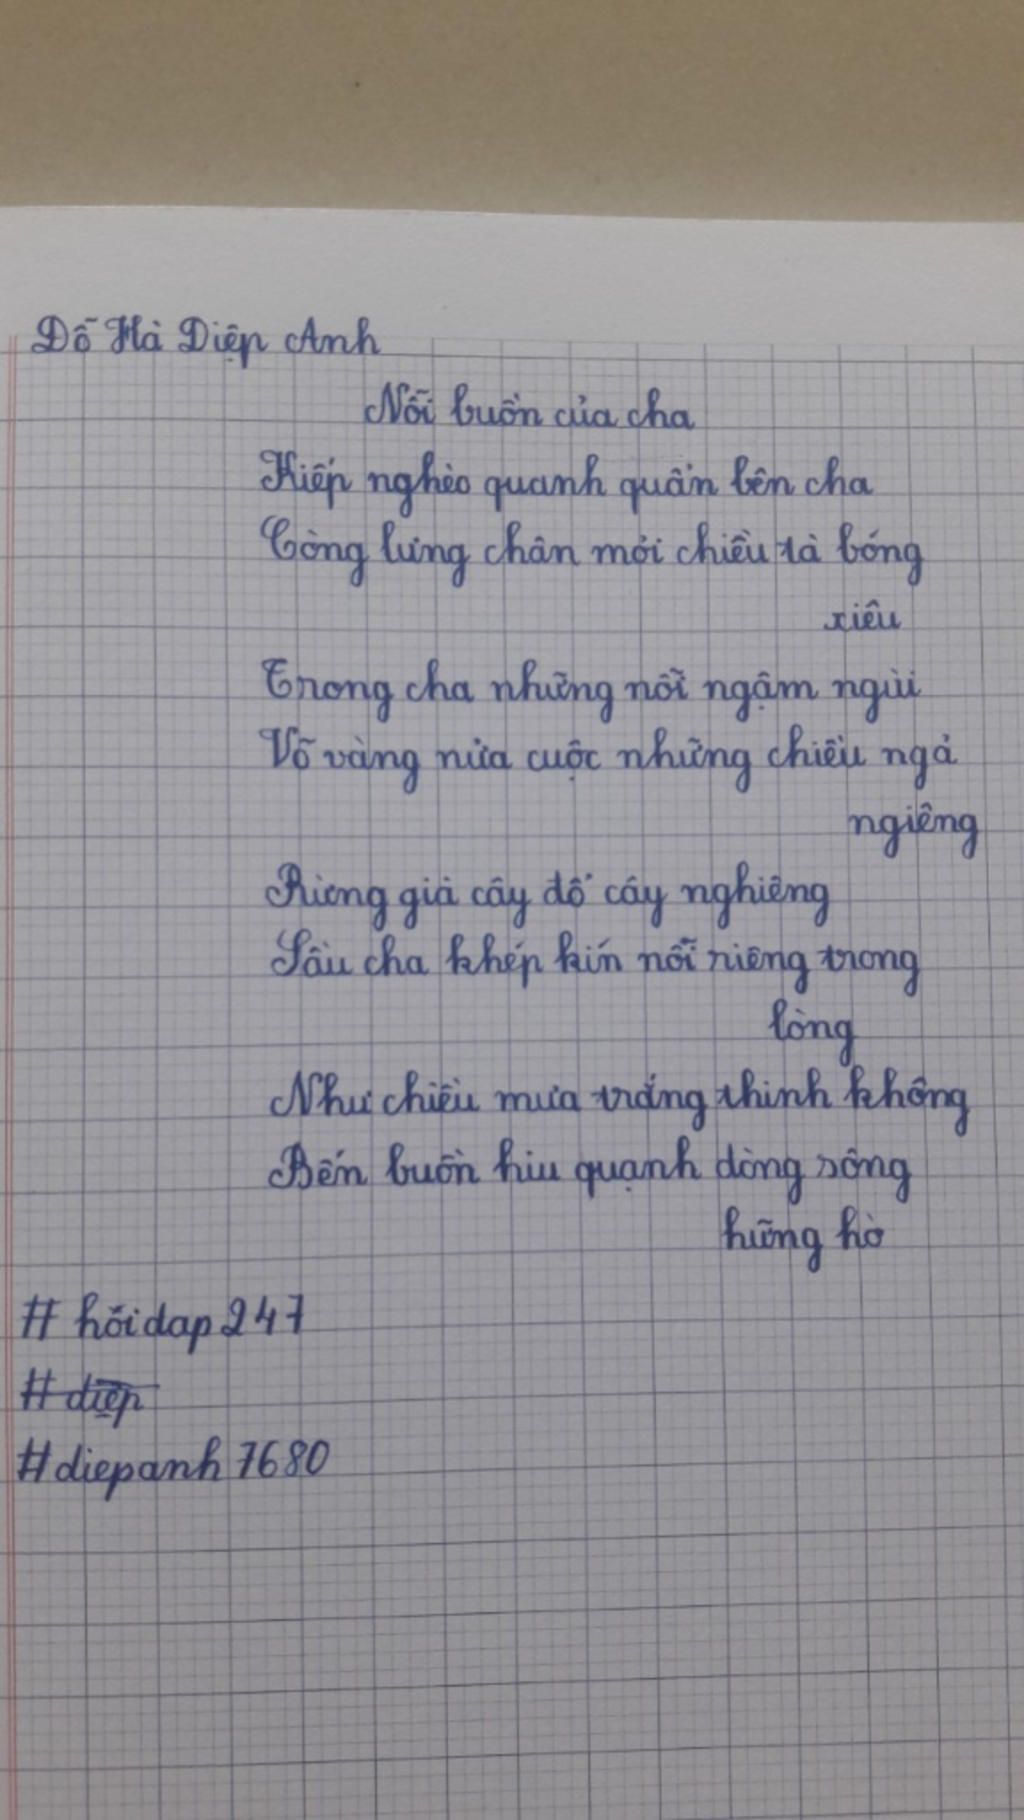 Đỗ Hà Diệp Anh
Nỗi buồn của cha
Kiếp nghèo quanh quẩn bên cha
Còng lưng chân mỏi chiều tà bóng
xiêu
Trong cha những nỗi ngậm ngùi
Võ vàng nửa cuộc những chiều ngả
ngiêng
Rừng già cây đổ cây nghiêng
Sầu cha khép kín nỗi riêng trong
lòng
Như chiều mưa trắng thinh không
Bến buồn hiu quạnh dòng sông
hững hờ
# hỏidap247
# diệp
#diepanh7680